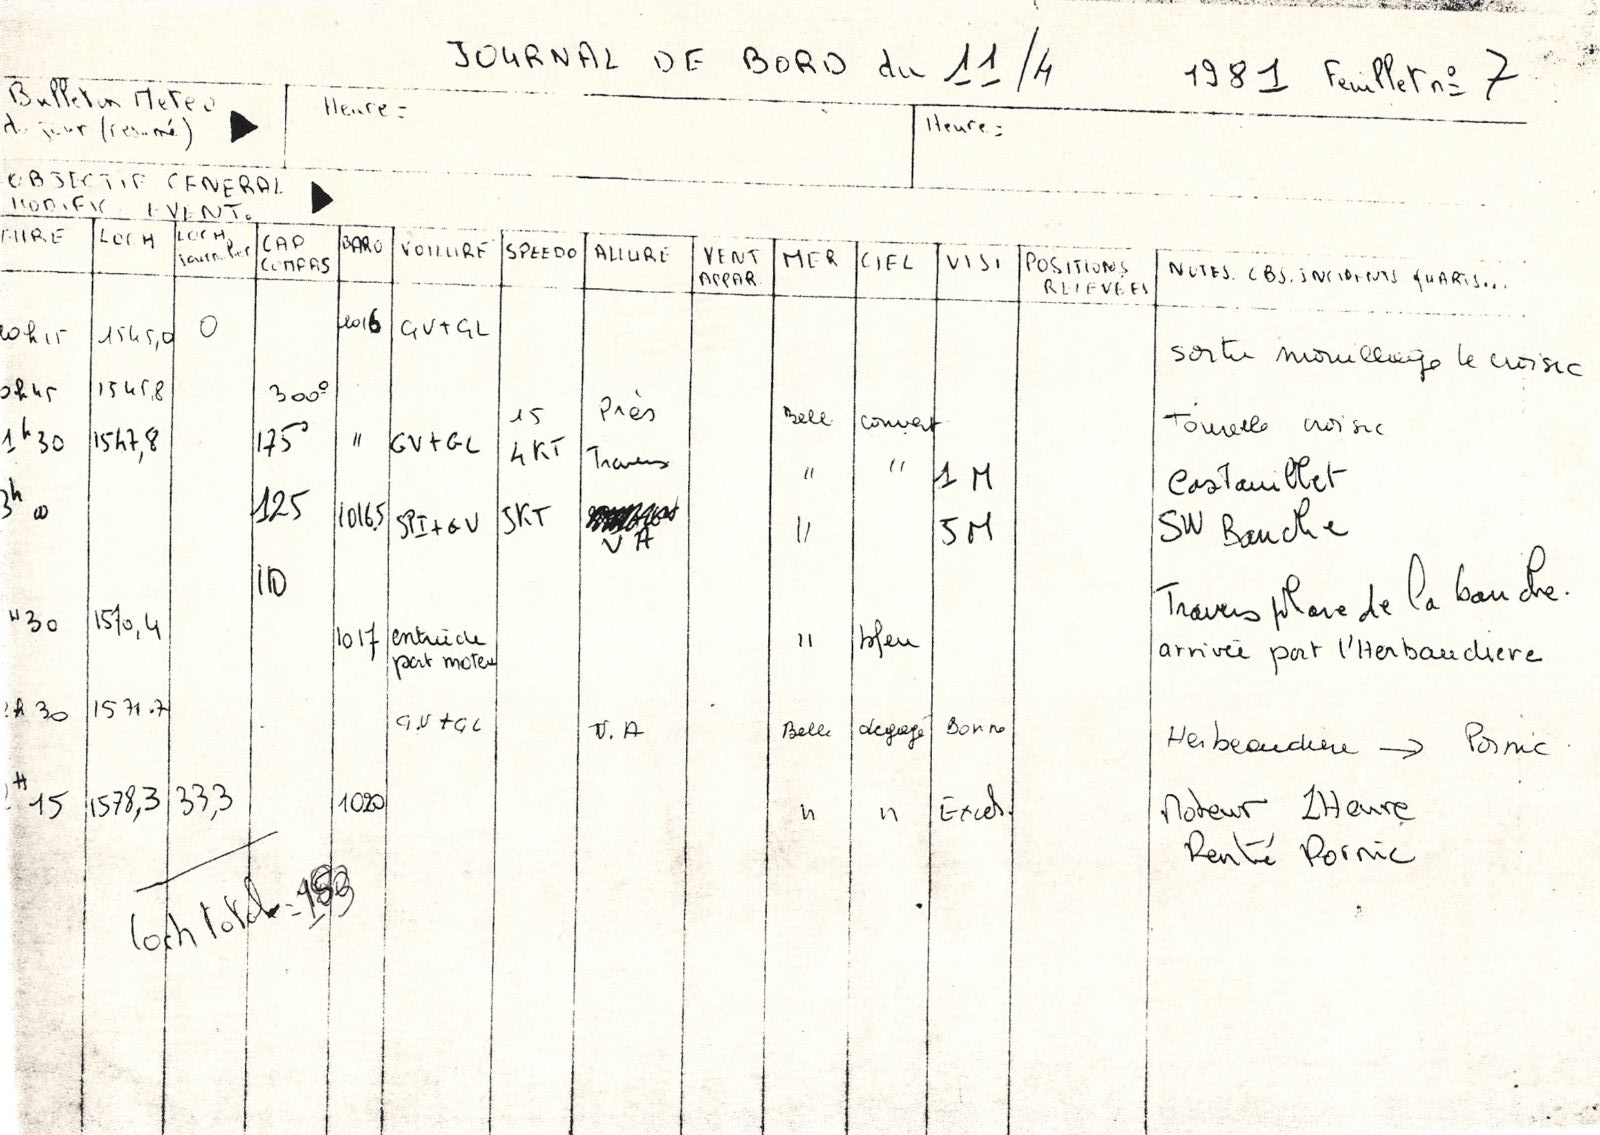 JOURNAL DE BORD du 11/4 1981 Feuillet n° 7
Bulletin Meteo Heure: Heure:
du jour (resumé)
OBJECTIF GENERAL
MODIFIC. EVENT.
LOCH LOCH CAP BARO VOILURE SPEEDO ALLURE VENT MER CIEL VISI POSITIONS NOTES. OBS. INCIDENTS QUARTS...
journalier COMPAS APPAR. RELEVÉES
0h15 1545,0 0 1016 GV+GL sortie mouillage le croisic
0h45 1545,8 300° 15 Près Belle couvert Tourelle croisic
1h30 1547,8 175° " GV+GL 4KT Travers " " 1 M Castouillet
3h00 125 1016,5 SPI+GV 5KT VA " 5M SW Banche
110 Travers phare de la banche.
H30 1570,4 1017 entrée de " bleu arrivée port l'Herbaudiere
port moteur
h30 1571.7 GV+GL V.A Belle degagé Bonne Herbeaudiere → Pornic
H15 1578,3 33,3 1020 " " Excel. Moteur 1Heure
Rentré Pornic
Loch total =